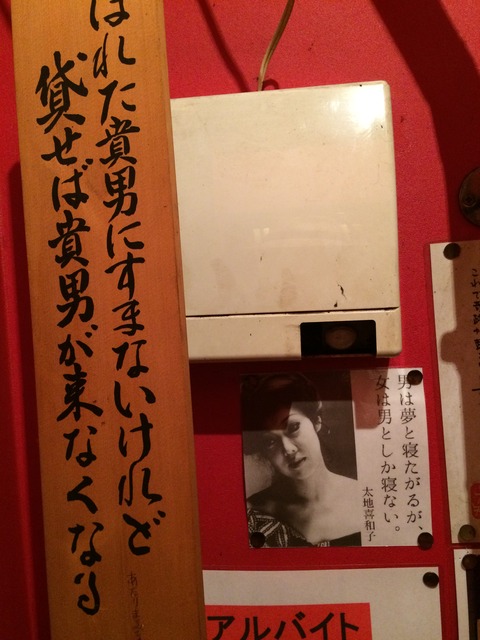 ほれた貴男にすまないけれど
貸せば貴男が来なくなる
男は夢と寝たがるが、
女は男としか寝ない。
太地喜和子
アルバイト